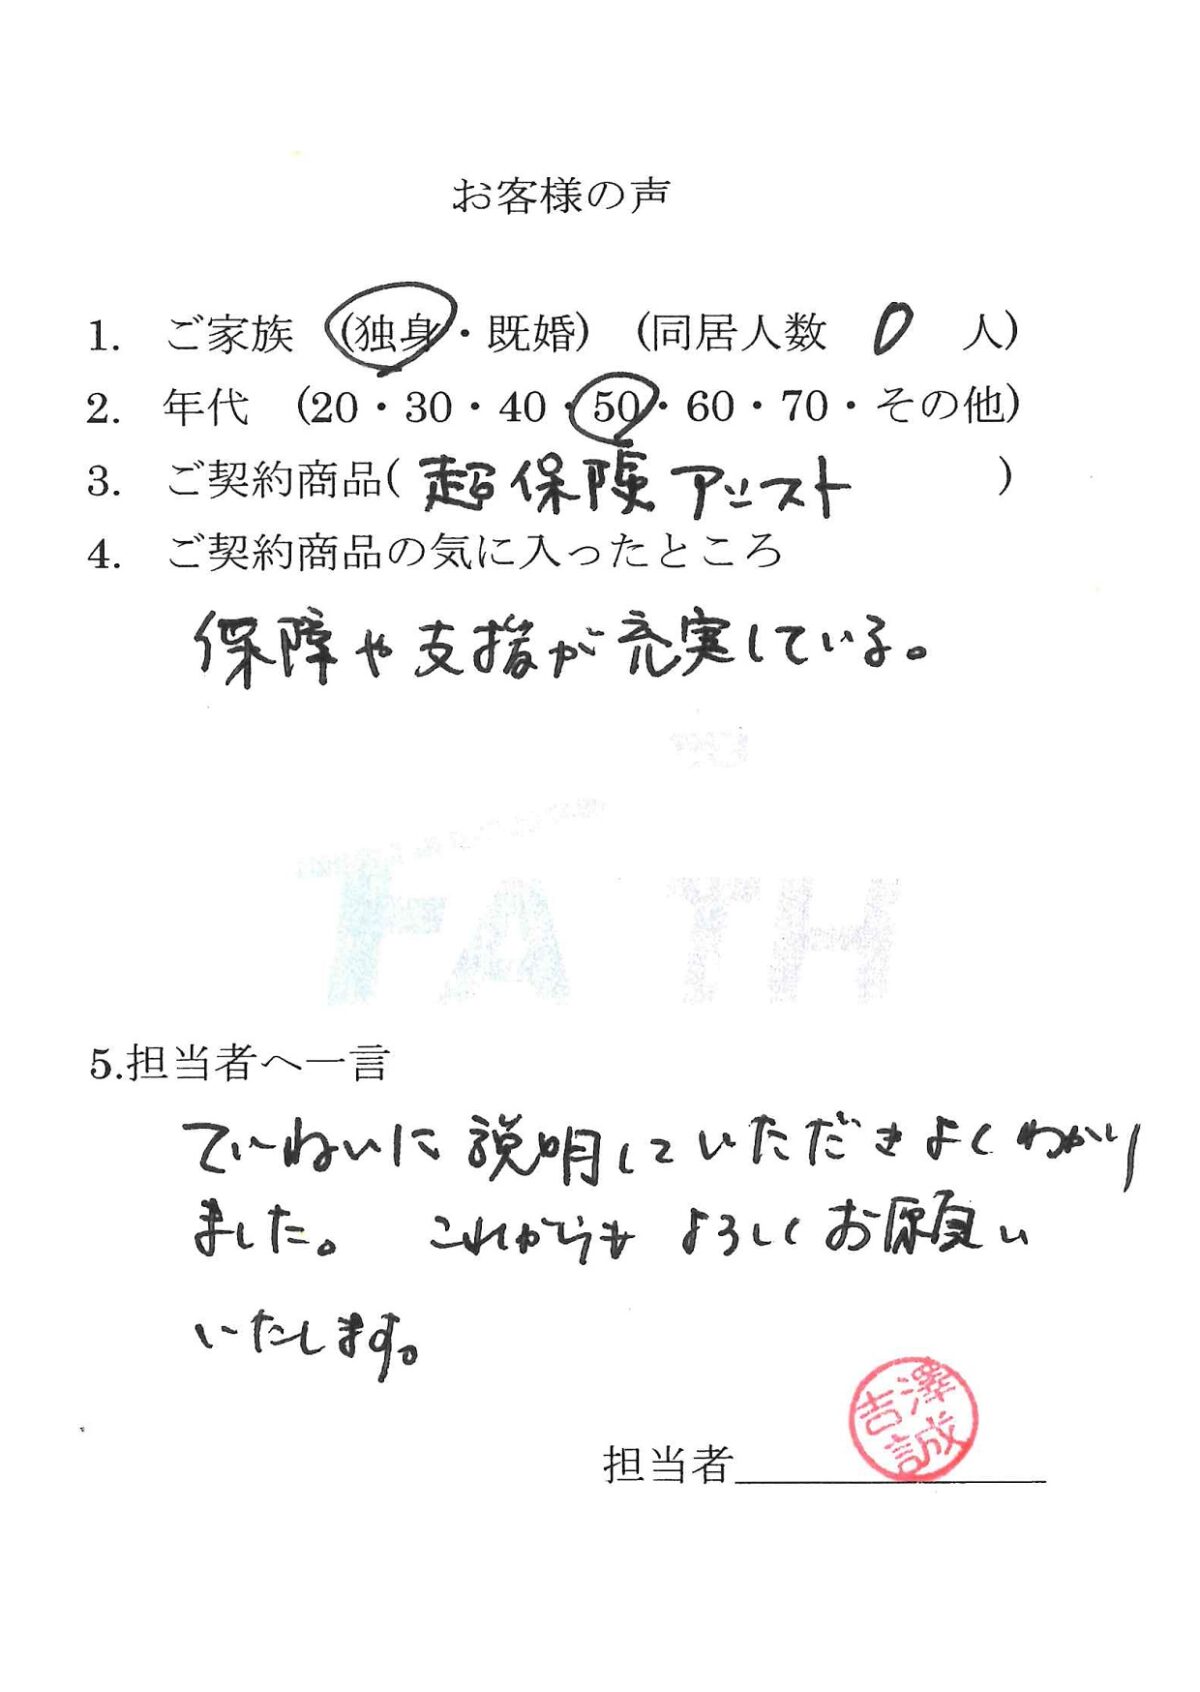 お客様の声
1. ご家族 (独身・既婚) (同居人数 0 人)
2. 年代 (20・30・40・50・60・70・その他)
3. ご契約商品(超保険アシスト)
4. ご契約商品の気に入ったところ
保障や支援が充実している。
FAITH
5.担当者へ一言
ていねいに説明していただきよくわかり
ました。 これからも よろしくお願い
いたします。
吉澤誠
担当者